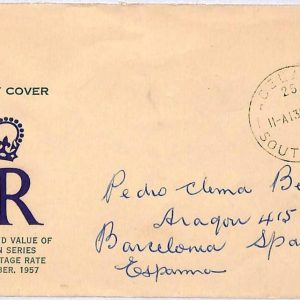 COVER
R
D VALUE OF
N SERIES
TAGE RATE
BER, 1957
25
11-A13
SOUT
Pedro Clema Be
Aragon 415
Barcelona Spa
Espanna